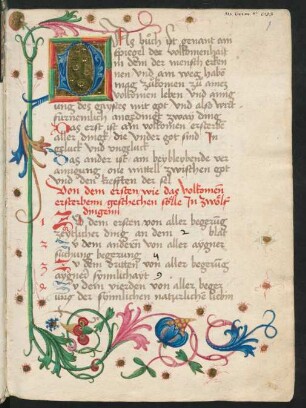 Dis buch ist genant ain
spiegel der volkomenhait
in dem der mensch erken
nen und am weg habe
mag zukomen zu aines
volkomen leben und ainig
ung des gaystes mit got und also wirt
fürnemlich angedingt zway ding
Das erst ist ain volkomen ersterbe
aller dingk die under got sind In
gluck und ungluck
Das ander ist ain beybleybende ver
ainigung, one mittell zwischen got
und den kreften der sel
Von dem ersten wie das volkomen
ersterben geschechen sölle In zwölf
dingen
Zu dem ersten von aller begerung
zeytlicher ding an dem 2 blat
Zu dem anderen von aller aygner
suchung begerung 4
Zu dem dritten von aller begerung
aygner synnlichayt 9
Zu dem vierden von aller beger
ung der synnlichen natürlichen liebin